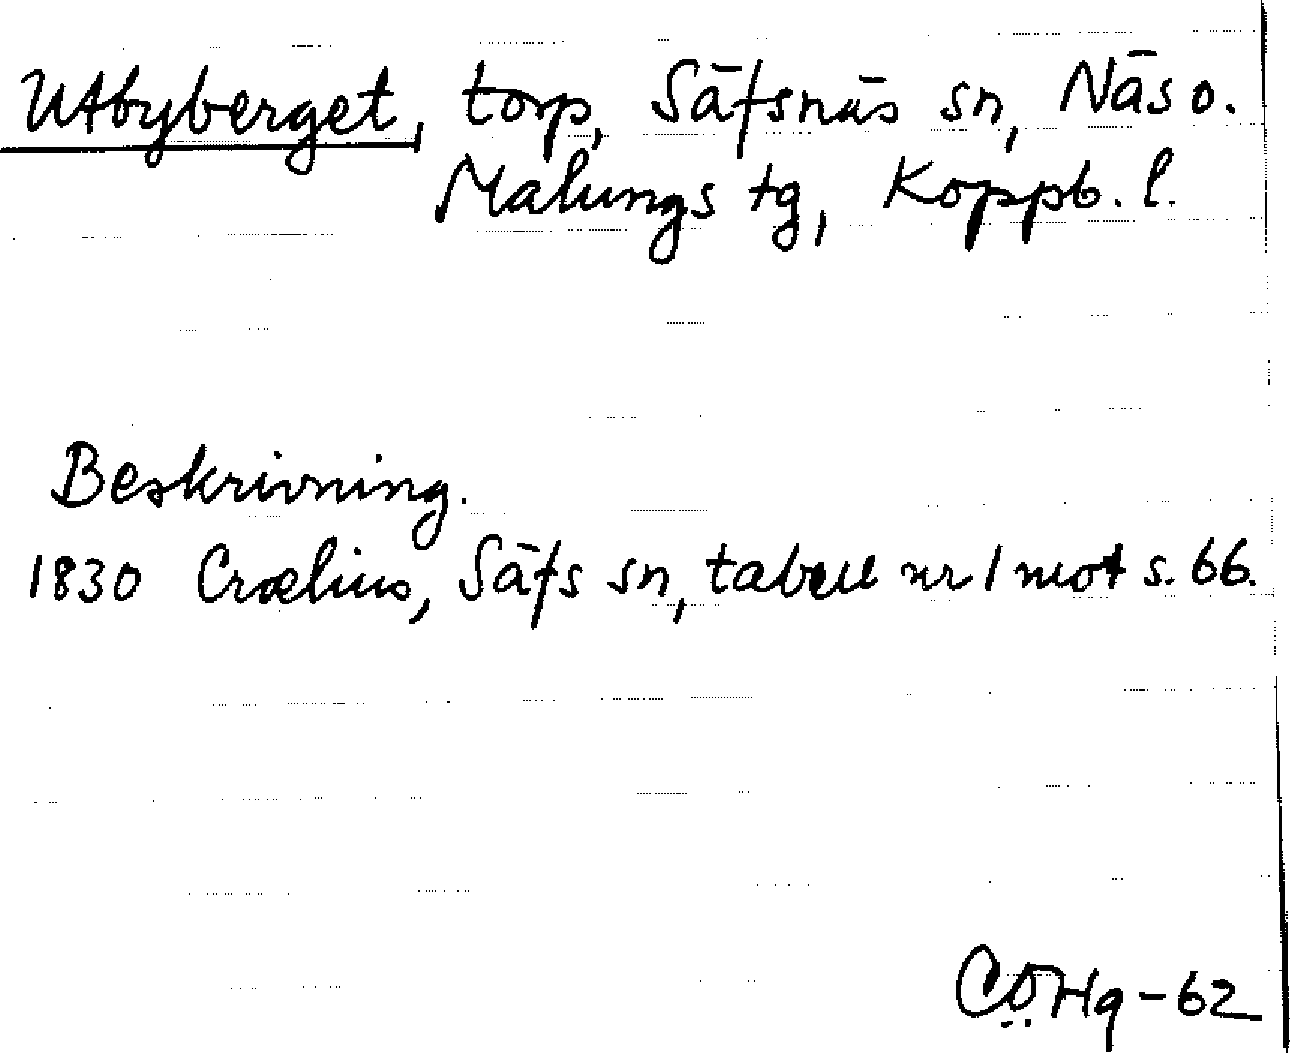 Utbyberget, torp, Säfsnäs sn, Näs o.
Malungs tg, Koppb. l.
Beskrivning.
1830 Crælius, Säfs sn, tabell nr 1 mot s. 66.
CÖHg-62